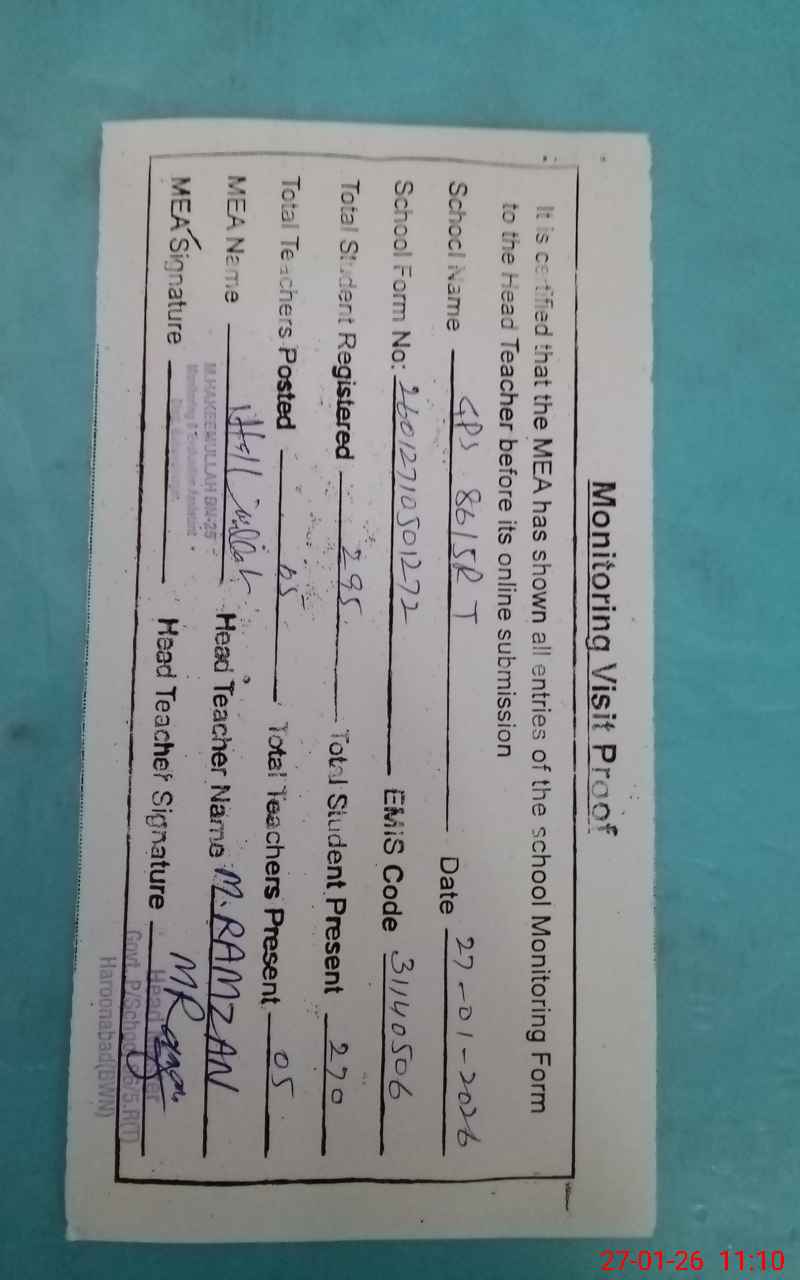 Monitoring Visit Proof
It is certified that the MEA has shown all entries of the school Monitoring Form
to the Head Teacher before its online submission
School Name GPS 86/5R T Date 27-01-2026
School Form No: 26012710501272 EMIS Code 31140506
Total Student Registered 295 Total Student Present 270
Total Teachers Posted 05 Total Teachers Present 05
MEA Name Head Teacher Name M. RAMZAN
M.HAKEEMULLAH BN-25
Monitoring & Evaluation Assistant
MEA Signature Head Teacher Signature
Head
Govt. P/School 86/5.R(T)
Haroonabad(BWN)
27-01-26 11:10